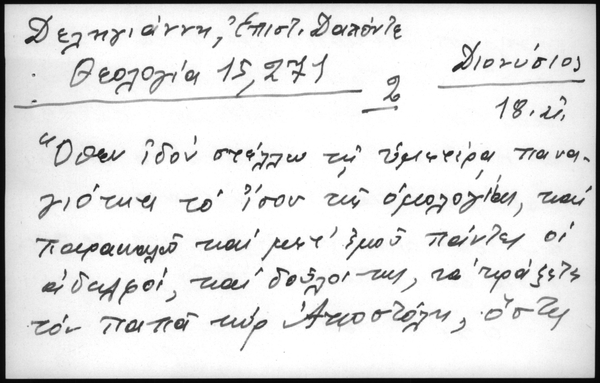 Δεληγιάννη, Ἐπιστ. Δαπόντε
Θεολογία 15, 271
2
Διονύσιος
18.
"Ὅθεν ἰδού στέλλω τῇ ὑμετέρᾳ πανα-
γιότητι τό ἴσον τῆς ὁμολογίας, καί
παρακαλῶ καί μετ' ἐμοῦ πάντες οἱ
ἀδελφοί, καί δοῦλοί της, νά
τόν παπᾶ κύρ Ἀποστόλη, ὅστις